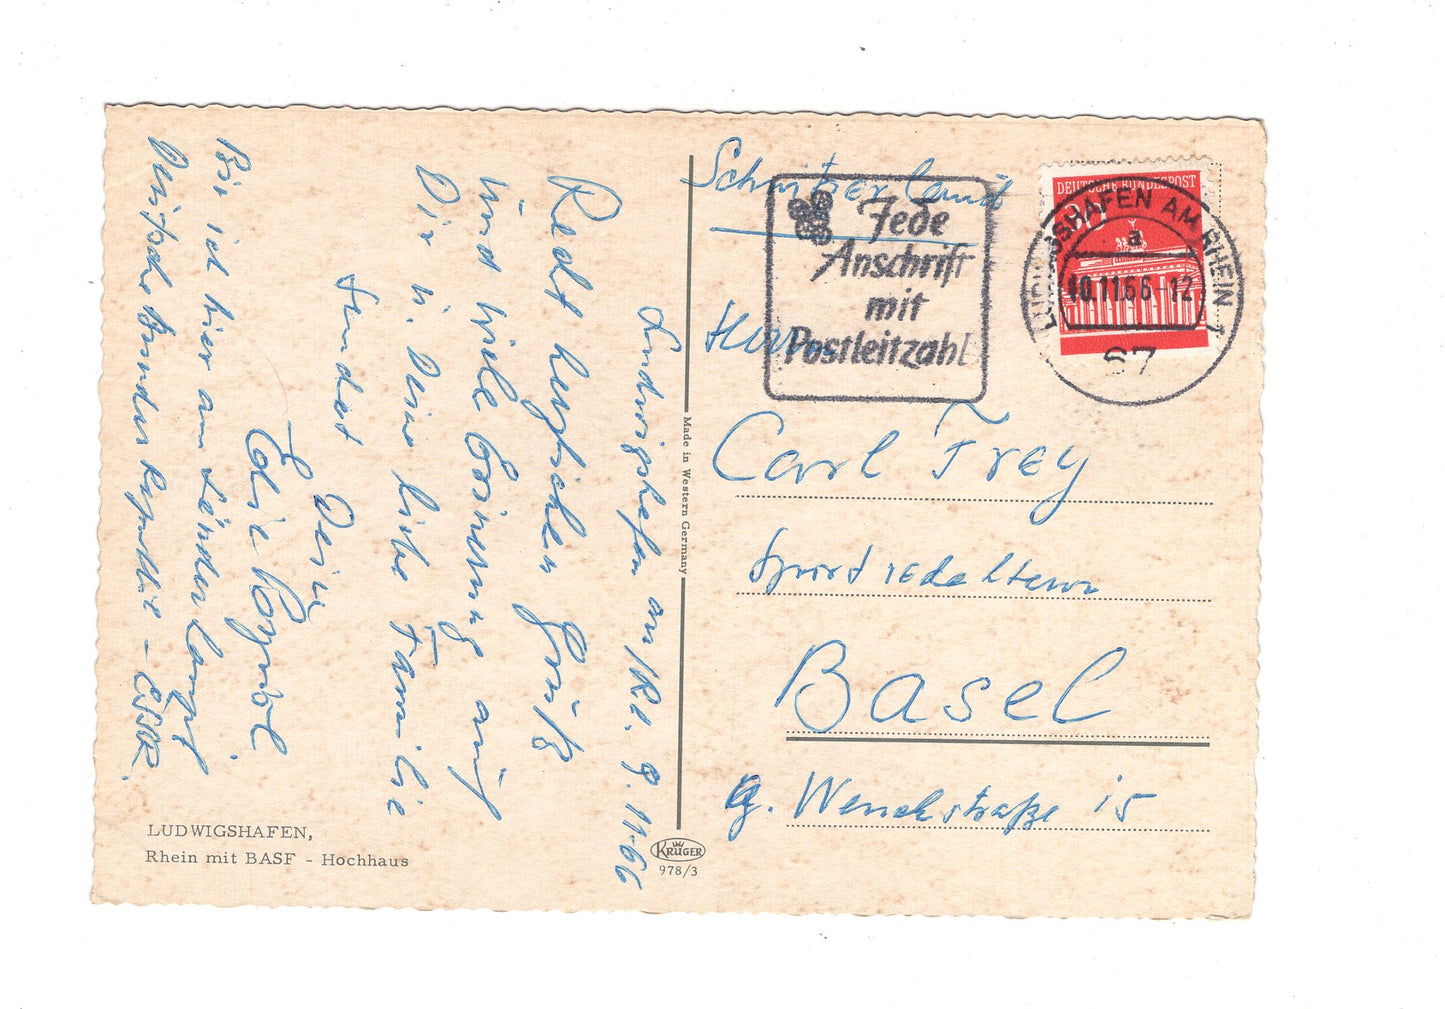 Ludwigshafen am/Rh. 9.11.66
Recht herzlichen Grüß
und viele Erinnerung auf
Dir u. Deine liebe Familie
sendet
Dein
Edie
Bin ich hier am Länderkampf
Deutsche Bundesrepublik - ČSSR.
LUDWIGSHAFEN,
Rhein mit BASF - Hochhaus
Made in Western Germany
KRÜGER
978/3
Schwitzerland
Jede
Anschrift
mit
Postleitzahl
DEUTSCHE BUNDESPOST
LUDWIGSHAFEN AM RHEIN 1
a
10.11.66-12
67
Herrn
Carl Frey
Sportredakteur
Basel
g. Wenckstraße 15